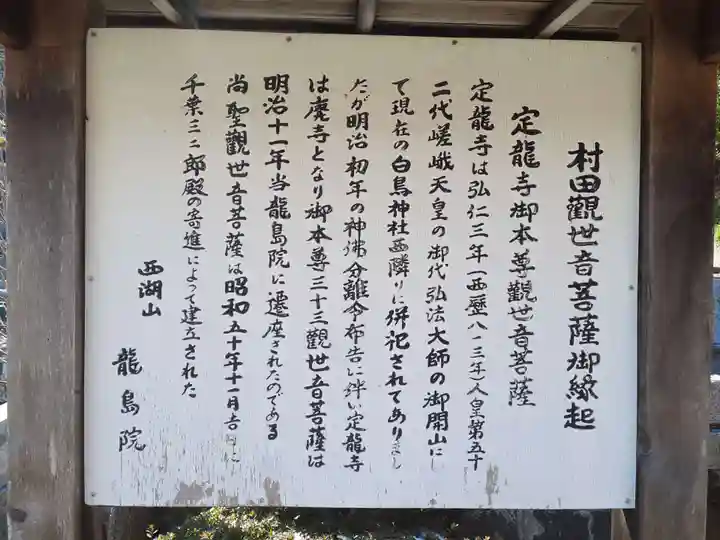 村田觀世音菩薩御縁起
定龍寺御本尊觀世音菩薩
定龍寺は弘仁三年(西歴八一三年)人皇第五十
二代嵯峨天皇の御代弘法大師の御開山にし
て現在の白鳥神社西隣りに併祀されてありまし
たが明治初年の神佛分離令布告に伴い定龍寺
は廃寺となり御本尊三十三觀世音菩薩は
明治十一年当龍島院に遷座されたのである
尚聖觀世音菩薩は昭和五十年十一月吉日に
千葉三二郎殿の寄進によって建立された
西湖山
龍島院